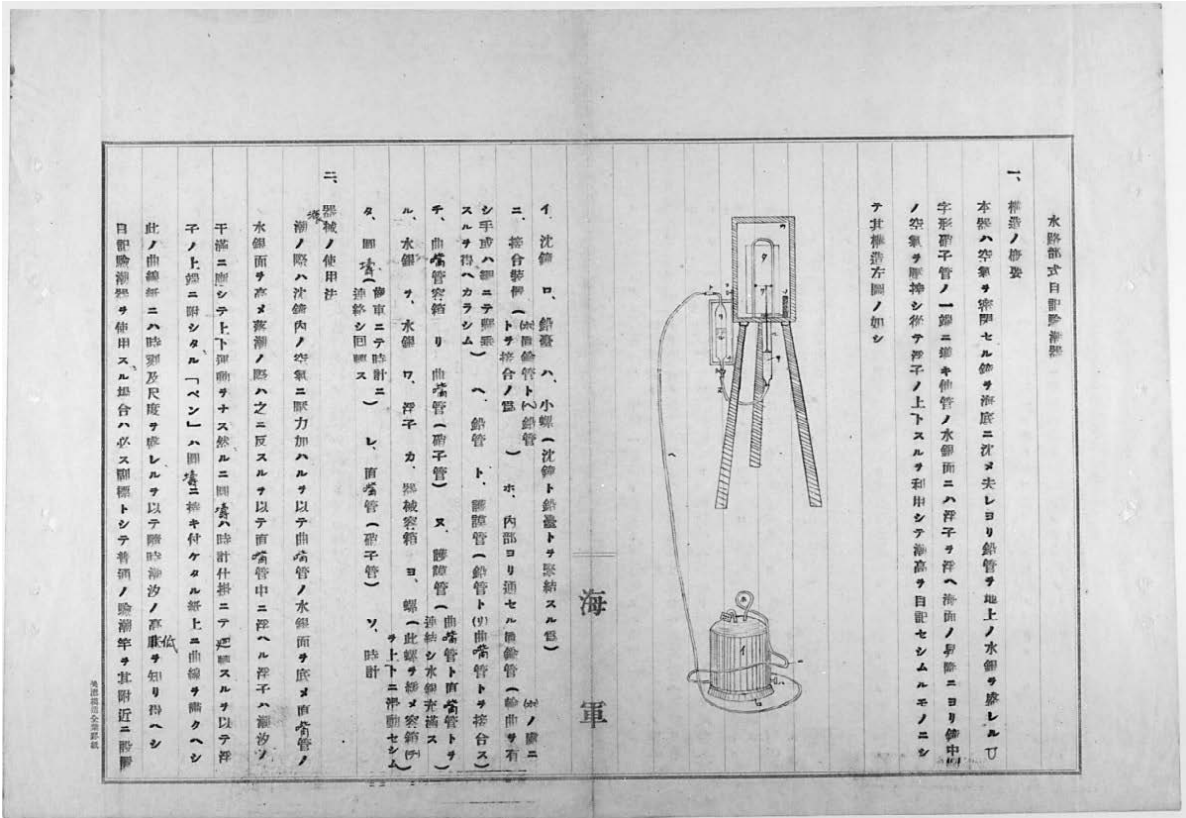 水路部式自記驗潮器
一、構造ノ概要
本器ハ空氣ヲ密閉セル鐘ヲ海底ニ沈メ夫レヨリ鉛管ヲ地上ノ水銀ヲ盛レルU
字形硝子管ノ一端ニ導キ他管ノ水銀面ニハ浮子ヲ浮ヘ海面ノ昇降ニヨリ鐘中
ノ空氣ヲ壓搾シ從テ浮子ノ上下スルヲ利用シテ潮高ヲ自記セシムルモノニシ
テ其構造左圖ノ如シ
海軍
イ、沈鐘 ロ、鉛臺 ハ、小螺(沈鐘ト鉛臺トヲ緊結スル爲)
ニ、接合裝置(ト鉛管トヲ接合ノ爲) ホ、内部ヨリ通セル鉛管(輪曲ヲ有
シ手或ハ綱ニテ スルヲ得ヘカラシム) ヘ、鉛管 ト、護謨管(鉛管ト(リ)曲嘴管トヲ接合ス)
チ、曲嘴管容箱 リ、曲嘴管(硝子管) ヌ、護謨管(曲嘴管ト直嘴管トヲ連結シ水銀充滿ス)
ル、水銀 ヲ、水銀 ワ、浮子 カ、器械容箱 ヨ、螺(此螺ヲ緩メ容箱(チ)ヲ上下ニ滑動セシム)
タ、圓壔(齒車ニテ時計ニ連絡シ回轉ス) レ、直嘴管(硝子管) ソ、時計
二、器械ノ使用法
漲潮ノ際ハ沈鐘内ノ空氣ニ壓力加ハルヲ以テ曲嘴管ノ水銀面ヲ底メ直嘴管ノ
水銀面ヲ高メ落潮ノ際ハ之ニ反スルヲ以テ直嘴管中ニ浮ヘル浮子ハ潮汐ノ
干滿ニ應シテ上下運動ヲナス然ルニ圓壔ハ時計仕掛ニテ運轉スルヲ以テ浮
子ノ上端ニ附シタル「ペン」ハ圓壔ニ捲キ付ケタル紙上ニ曲線ヲ畫クヘシ
此ノ曲線紙ニハ時刻及尺度ヲ盛レルヲ以テ隨時潮汐ノ高低ヲ知リ得ヘシ
自記驗潮器ヲ使用スル場合ハ必ス副標トシテ普通ノ驗潮竿ヲ其附近ニ設置